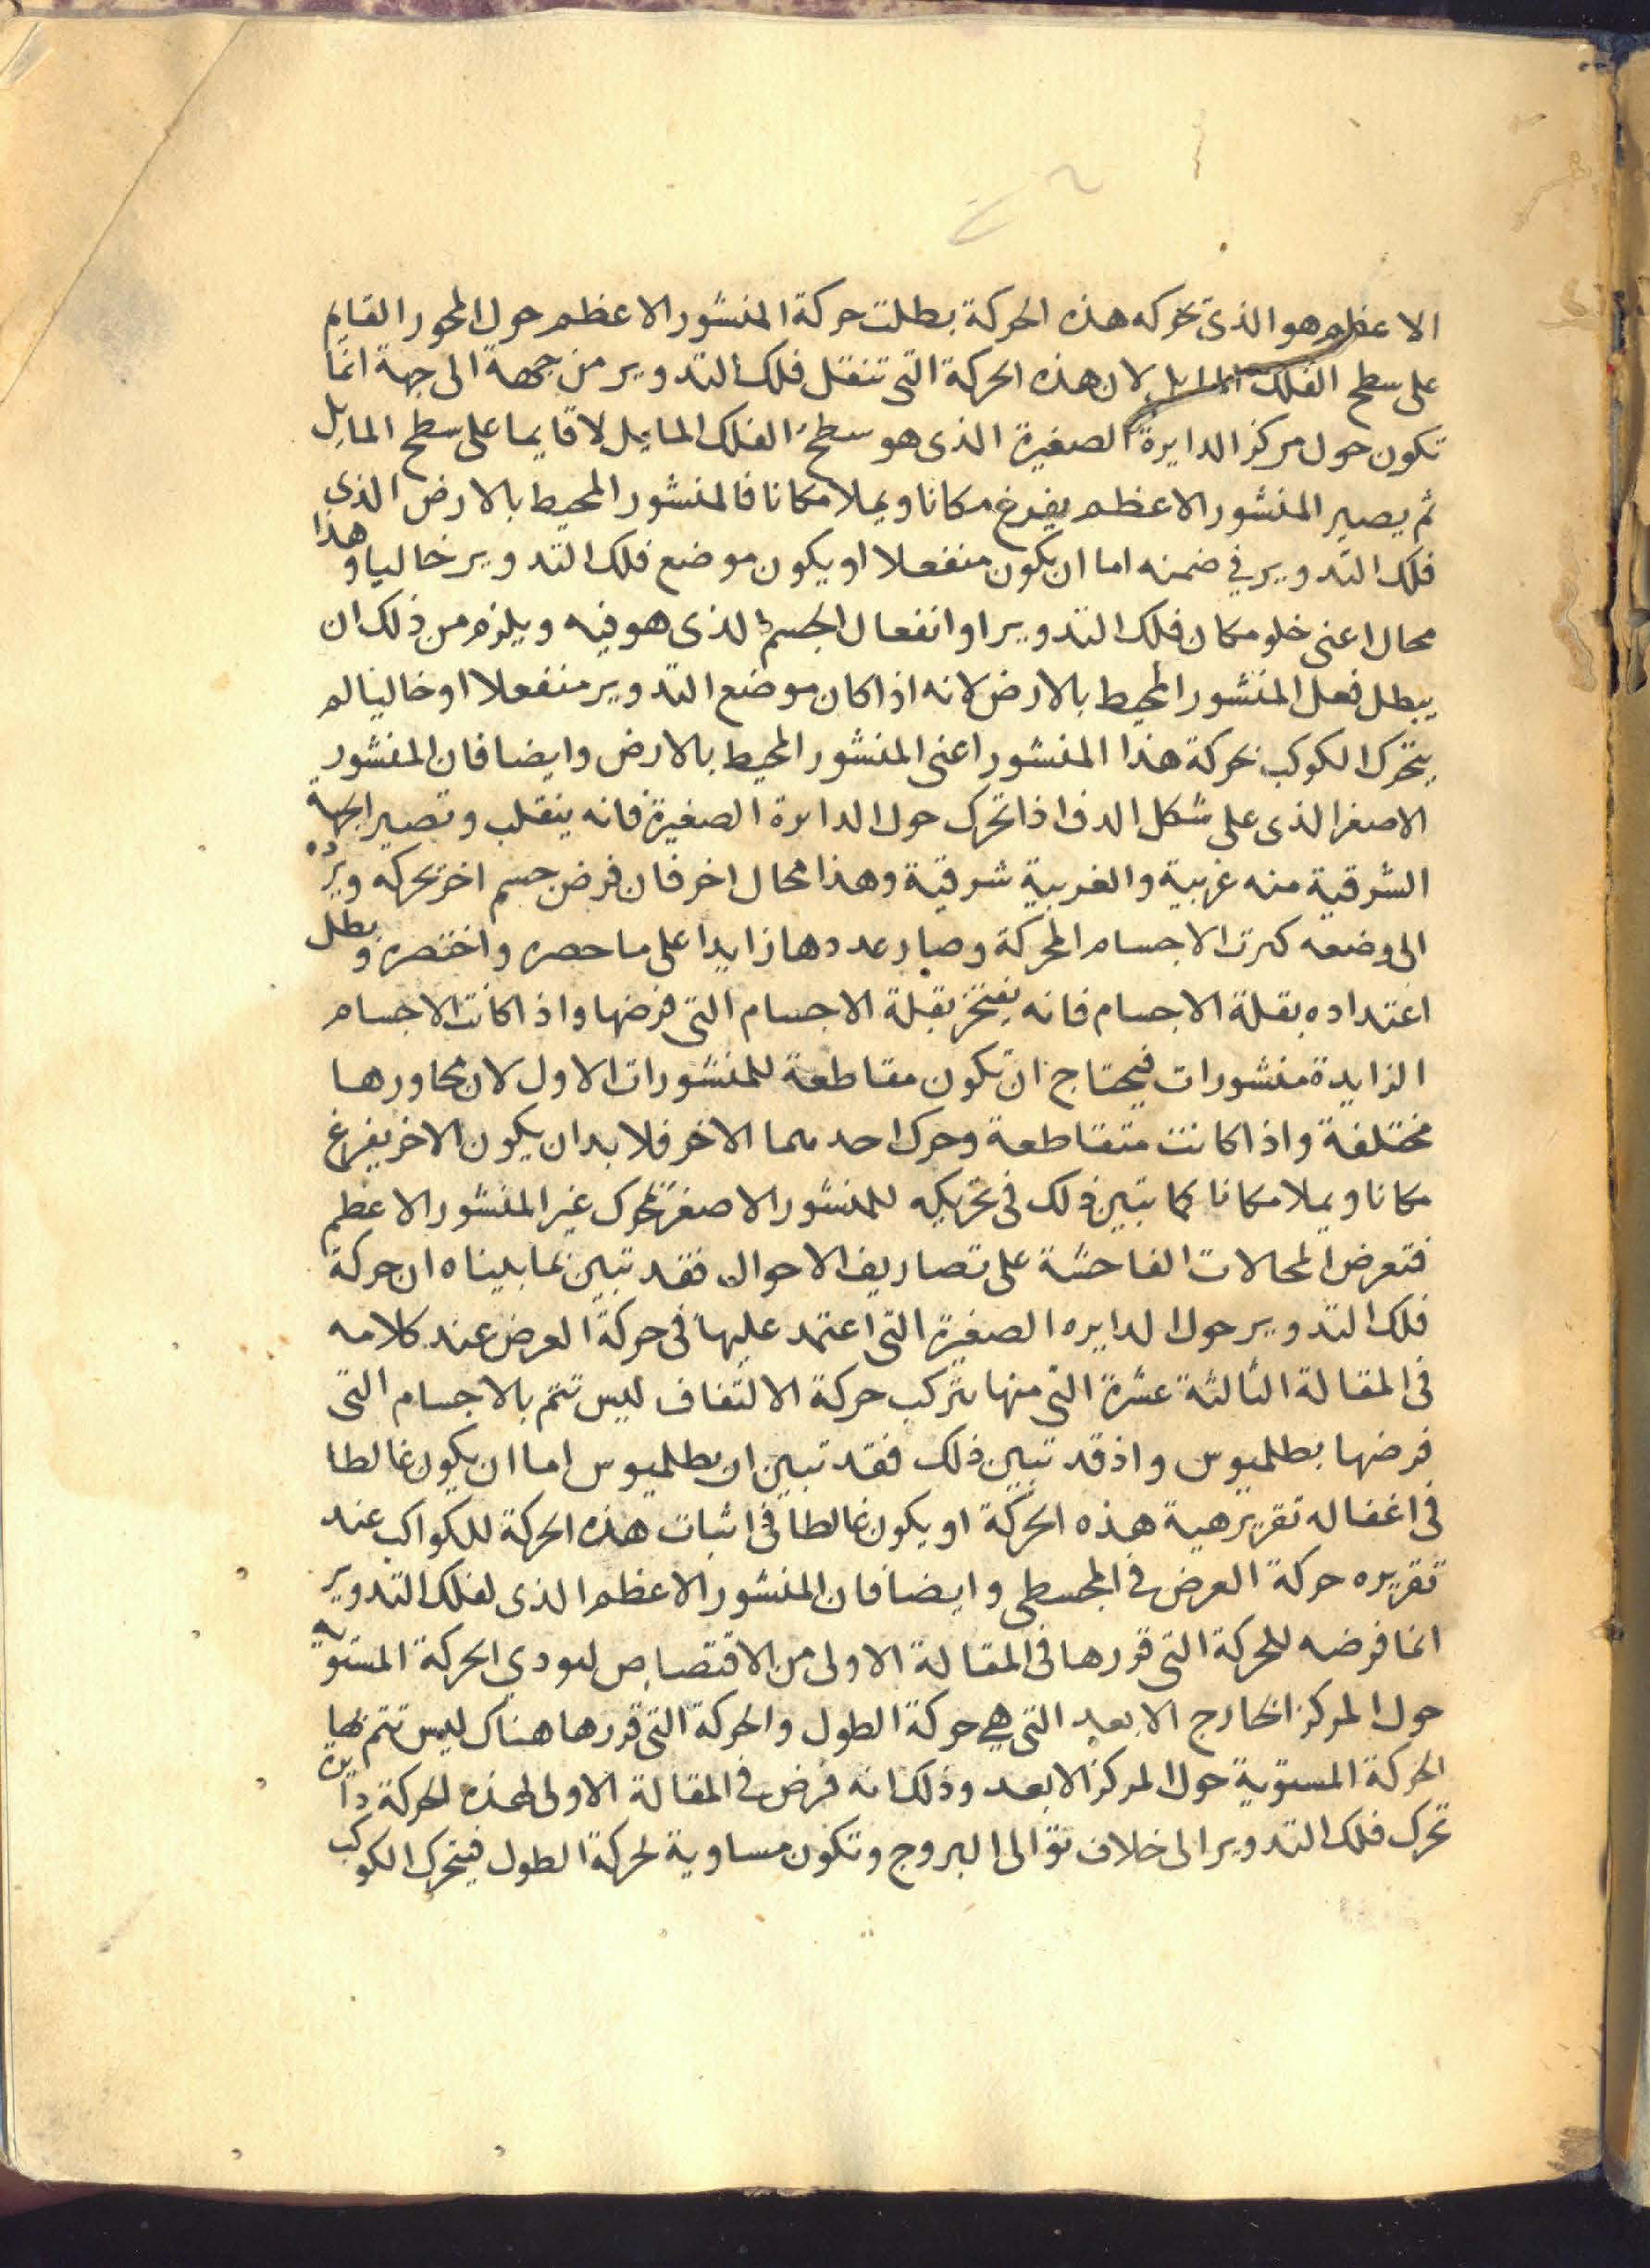 الاعظم هو الذى تحركه هذه الحركة بطلت حركة المنشور الاعظم حول المحور القايم
على سطح الفلك المايل لان هذه الحركة التى تنقل فلك التدوير من جهة الى جهة انما
تكون حول مركز الدايرة الصغيرة الذى هو سطح الفلك المايل لا قايما على سطح المايل
ثم يصير المنشور الاعظم يفرغ مكانا ويملا مكانا فالمنشور المحيط بالارض الذى
فلك التدوير في ضمنه اما ان يكون منفعلا او يكون موضع فلك التدوير خاليا وهذا
محال اعنى خلو مكان فلك التدوير او انفعال الجسم الذى هو فيه ويلزم من ذلك ان
يبطل فعل المنشور المحيط بالارض لانه اذا كان موضع التدوير منفعلا او خاليا لم
يتحرك الكوكب بحركة هذا المنشور اعنى المنشور المحيط بالارض وايضا فان المنشور
الاصغر الذى على شكل الدف اذا تحرك حول الدايرة الصغيرة فانه ينقلب وتصير الجهة
الشرقية منه غربية والغربية شرقية وهذا محال اخر فان فرض جسم اخر يحركه ويرده
الى وضعه كثرت الاجسام المحركة وصار عددها زايدا على ما حصره واختصره وبطل
اعتداده بقلة الاجسام فانه يفتخر بقلة الاجسام التى فرضها واذا كانت الاجسام
الزايدة منشورات فيحتاج ان تكون مقاطعة للمنشورات الاول لان محاورها
مختلفة واذا كانت متقاطعة وحرك احدهما الاخر فلا بد ان يكون الاخر يفرغ
مكانا ويملا مكانا كما تبين ذلك فى تحريكه للمنشور الاصغر تحرك غير المنشور الاعظم
فتعرض المحالات الفاحشة على تصاريف الاحوال فقد تبين بما بيناه ان حركة
فلك التدوير حول الدايره الصغيرة التى اعتمد عليها فى حركة العرض عند كلامه
فى المقالة الثالثة عشرة التى منها تتركب حركة الالتفاف ليس تتم بالاجسام التى
فرضها بطلميوس واذ قد تبين ذلك فقد تبين ان بطلميوس اما ان يكون غالطا
فى اغفاله تقرير هية هذه الحركة او يكون غالطا فى اثبات هذه الحركة للكواكب عند
تقريره حركة العرض في المجسطى وايضا فان المنشور الاعظم الذى لفلك التدوير
انما فرضه للحركة التى قررها فى المقالة الاولى من الاقتصاص ليودي الحركة المستوية
حول المركز الخارج الابعد التى هي حركة الطول والحركة التى قررها هناك ليس تتم بها
الحركة المستوية حول المركز الابعد وذلك انه فرض في المقالة الاولى لهذه الحركة دايرة
تحرك فلك التدوير الى خلاف توالى البروج وتكون مساوية لحركة الطول فيتحرك الكوكب